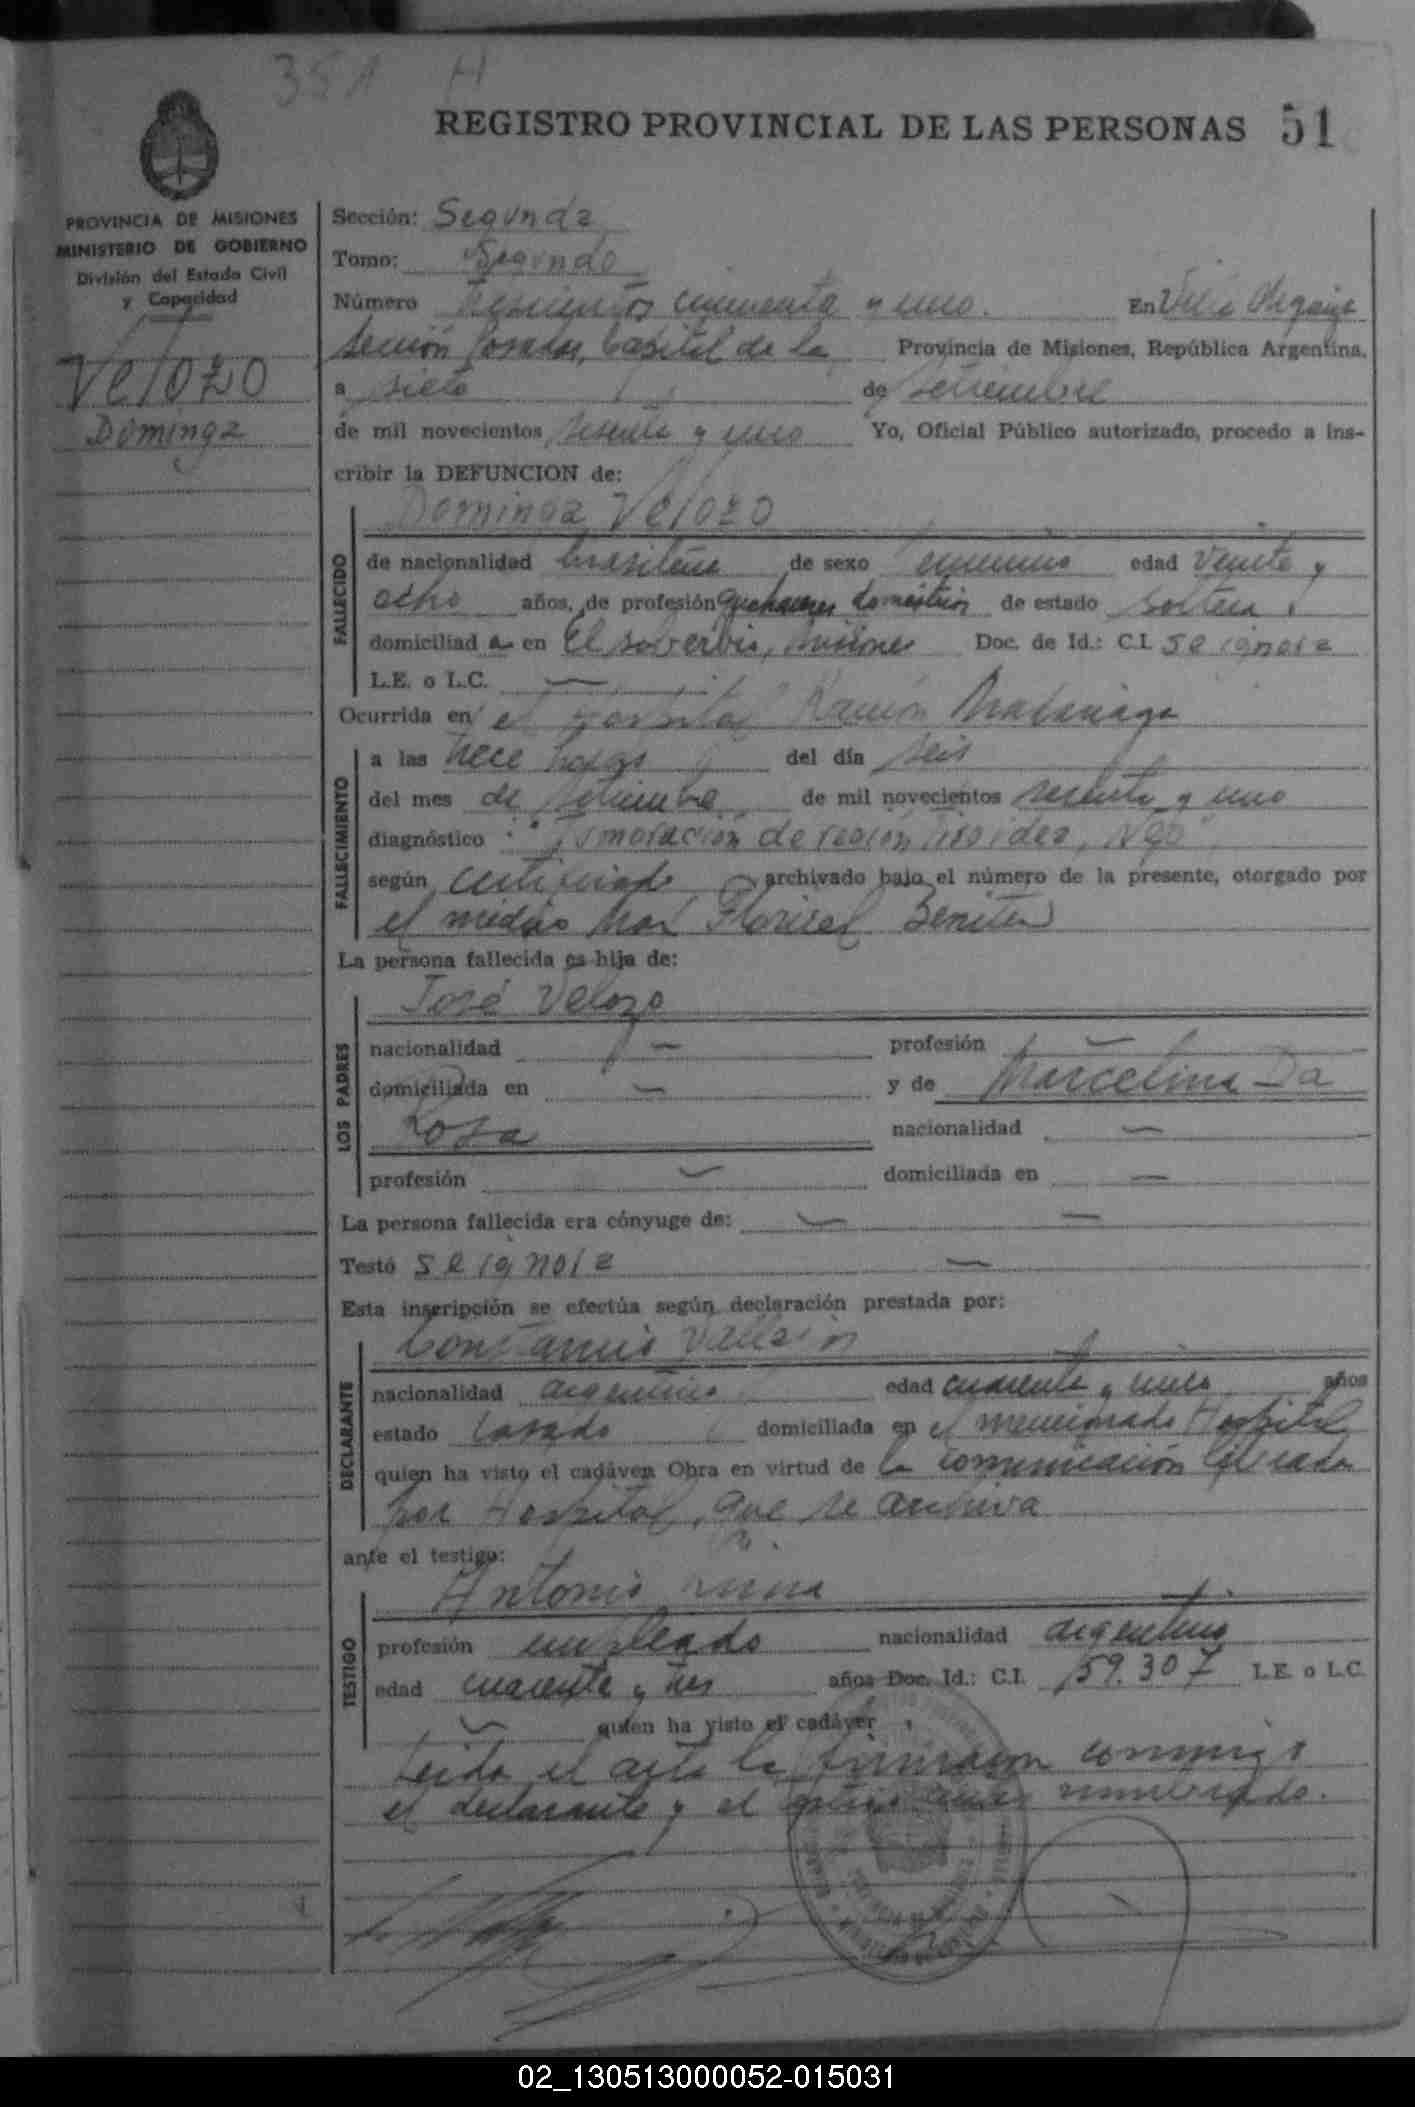 351 H
REGISTRO PROVINCIAL DE LAS PERSONAS 51
PROVINCIA DE MISIONES
MINISTERIO DE GOBIERNO
División del Estado Civil
y Capacidad
Velozo
Dominga
Sección: Segunda
Tomo: Segundo
Número trescientos cincuenta y uno. En Villa
Sección Posadas, Capital de la Provincia de Misiones, República Argentina,
a siete de setiembre
de mil novecientos sesenta y uno Yo, Oficial Público autorizado, procedo a ins-
cribir la DEFUNCION de:
Dominga Velozo
FALLECIDO
de nacionalidad brasileña de sexo femenino edad veinte y
ocho años, de profesión quehaceres domésticos de estado soltera
domiciliad a en El soberbio, Misiones Doc. de Id.: C.I. se ignora
L.E. o L.C. —
Ocurrida en el Hospital Ramón Madariaga
FALLECIMIENTO
a las trece horas del día seis
del mes de setiembre de mil novecientos sesenta y uno
diagnóstico : "Tumoración de región tiroidea,
según certificado archivado bajo el número de la presente, otorgado por
el médico Benitez
La persona fallecida es hija de:
LOS PADRES
José Velozo
nacionalidad — profesión —
domiciliada en — y de Marcelina Da
Rosa nacionalidad —
profesión — domiciliada en —
La persona fallecida era cónyuge de: — —
Testó se ignora —
Esta inscripción se efectúa según declaración prestada por:
DECLARANTE
Constancio
nacionalidad argentino edad cuarenta y uno años
estado casado domiciliada en el mencionado Hospital
quien ha visto el cadáver. Obra en virtud de la comunicación
por Hospital, que se archiva
ante el testigo:
TESTIGO
Antonio
profesión empleado nacionalidad argentino
edad cuarenta y tres años Doc. Id.: C.I. 159.307 L.E. o L.C.
— quien ha visto el cadáver
Leída el acta la firmaron conmigo
el declarante y el testigo nombrado.
02_130513000052-015031